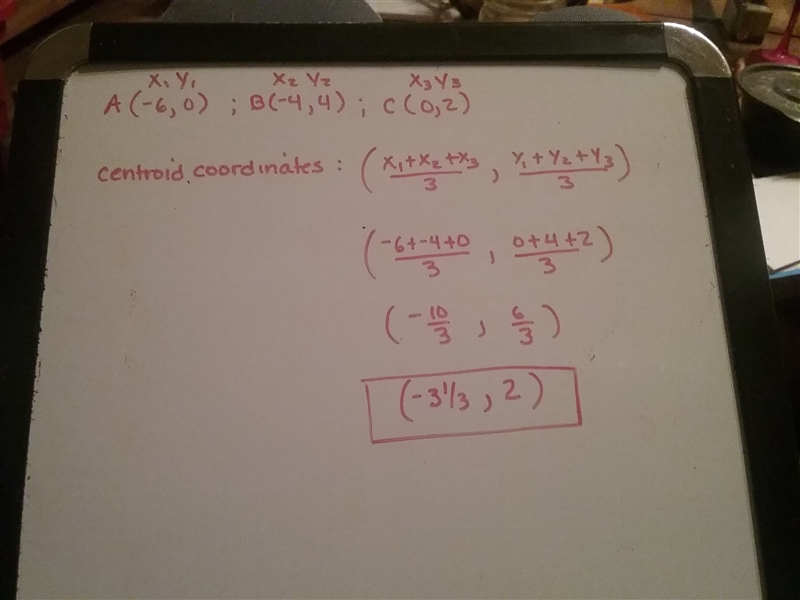 X₁ Y₁ X₂ Y₂ X₃ Y₃
A (-6, 0) ; B(-4, 4) ; C (0, 2)
centroid coordinates : (X₁+X₂+X₃/3 , Y₁+Y₂+Y₃/3)
(-6+-4+0/3 , 0+4+2/3)
(-10/3 , 6/3)
(-3 1/3 , 2)